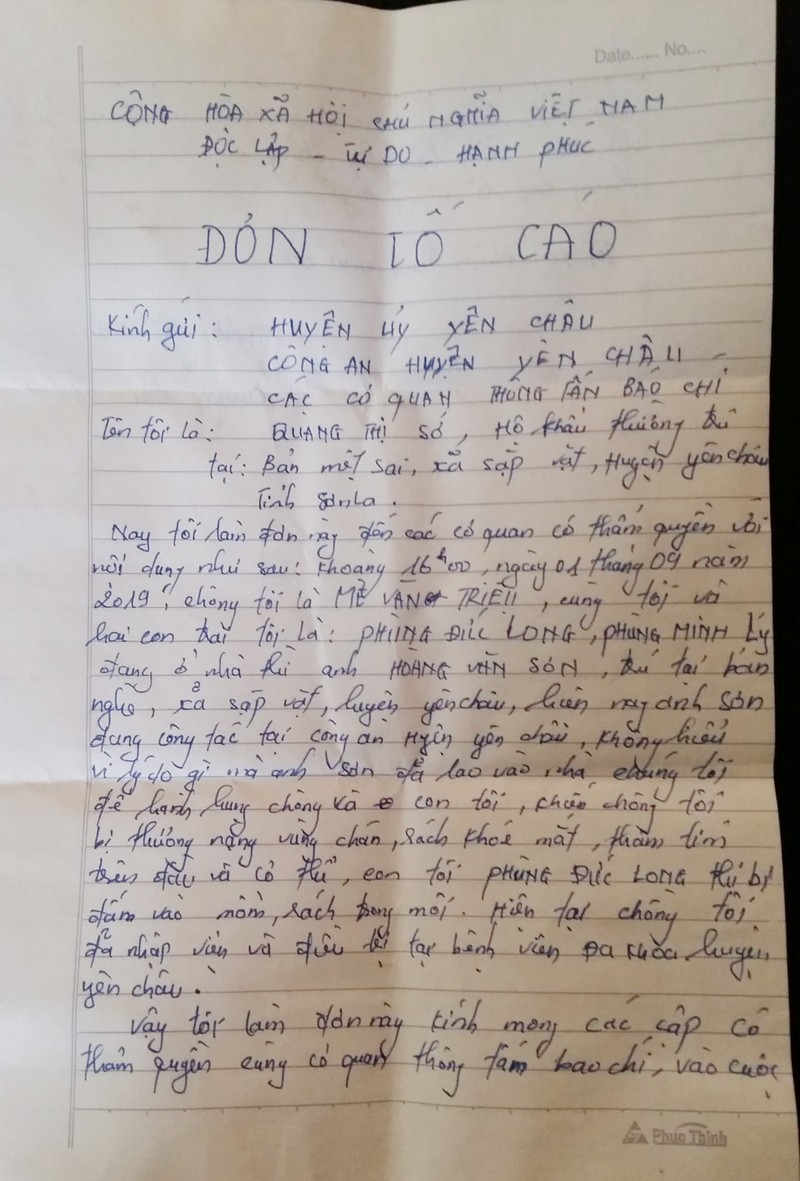 Date...... No....
CỘNG HÒA XÃ HỘI CHỦ NGHĨA VIỆT NAM
ĐỘC LẬP - TỰ DO - HẠNH PHÚC
ĐƠN TỐ CÁO
Kính gửi: HUYỆN ỦY YÊN CHÂU
CÔNG AN HUYỆN YÊN CHÂU
CÁC CƠ QUAN THÔNG TẤN BÁO CHÍ
Tên tôi là: QUANG THỊ SỚ, Hộ khẩu thường trú
tại: Bản mệt sai, xã sặp vạt, Huyện yên châu
Tỉnh sơn la.
Nay tôi làm đơn này đến các cơ quan có thẩm quyền với
nội dung như sau: khoảng 16h00, ngày 01 tháng 09 năm
2019, chồng tôi là MÈ VĂN TRIỆU, cùng tôi và
hai con trai tôi là: PHÙNG ĐỨC LONG, PHÙNG MINH Lý
đang ở nhà thì anh HOÀNG VĂN SƠN, trú tại bản
nghè, xã sặp vạt, huyện yên châu, hiện nay anh sơn
đang công tác tại công an Huyện yên châu, không hiểu
vì lý do gì mà anh sơn đã lao vào nhà chúng tôi
để hành hung chồng và con tôi, khiến chồng tôi
bị thương nặng vùng chân, rách khoé mắt, thâm tím
trên đầu và cơ thể, con tôi PHÙNG ĐỨC LONG thì bị
đấm vào mồm, rách trong môi. Hiện tại chồng tôi
đã nhập viện và điều trị tại bệnh viện Đa khoa huyện
yên châu.
Vậy tôi làm đơn này kính mong các cấp có
thẩm quyền cùng cơ quan thông tấn báo chí, vào cuộc
Phuc Thinh